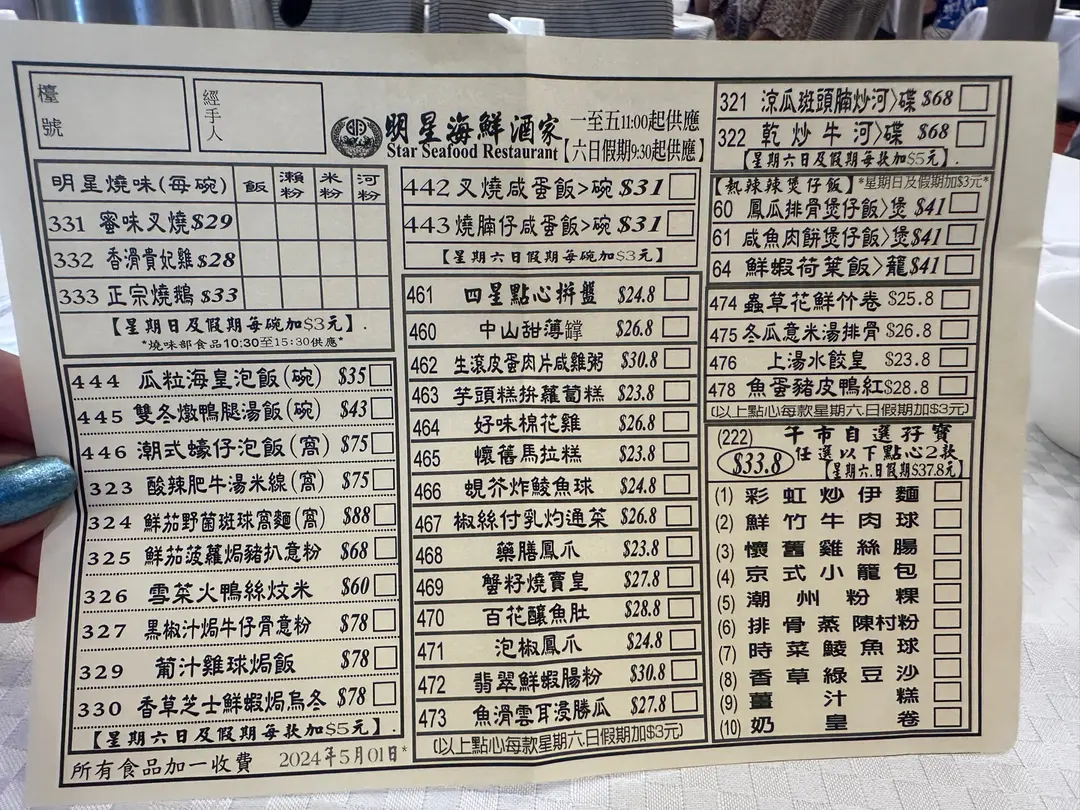 檯號
經手人
明星海鮮酒家
Star Seafood Restaurant
一至五11:00起供應
【六日假期9:30起供應】
明星燒味(每碗) 飯 瀨粉 米粉 河粉
331 蜜味叉燒 $29
332 香滑貴妃雞 $28
333 正宗燒鵝 $33
【星期日及假期每碗加$3元】.
*燒味部食品10:30至15:30供應*
444 瓜粒海皇泡飯(碗) $35
445 雙冬燉鴨腿湯飯(碗) $43
446 潮式蠔仔泡飯(窩) $75
323 酸辣肥牛湯米線(窩) $75
324 鮮茄野菌斑球窩麵(窩) $88
325 鮮茄菠蘿焗豬扒意粉 $68
326 雪菜火鴨絲炆米 $60
327 黑椒汁焗牛仔骨意粉 $78
329 葡汁雞球焗飯 $78
330 香草芝士鮮蝦焗烏冬 $78
【星期六日及假期每款加$5元】.
所有食品加一收費 2024年5月01日*
442 叉燒咸蛋飯>碗 $31
443 燒腩仔咸蛋飯>碗 $31
【星期六日假期每碗加$3元】
461 四星點心拼盤 $24.8
460 中山甜薄罉 $26.8
462 生滾皮蛋肉片咸雞粥 $30.8
463 芋頭糕拼蘿蔔糕 $23.8
464 好味棉花雞 $26.8
465 懷舊馬拉糕 $23.8
466 蜆芥炸鯪魚球 $24.8
467 椒絲付乳灼通菜 $26.8
468 藥膳鳳爪 $23.8
469 蟹籽燒賣皇 $27.8
470 百花釀魚肚 $28.8
471 泡椒鳳爪 $24.8
472 翡翠鮮蝦腸粉 $30.8
473 魚滑雲耳浸勝瓜 $27.8
(以上點心每款星期六.日假期加$3元)
321 涼瓜斑頭腩炒河>碟 $68
322 乾炒牛河>碟 $68
【星期六日及假期每款加$5元】.
【熱辣辣煲仔飯】*星期日及假期加$3元*
60 鳳爪排骨煲仔飯>煲 $41
61 咸魚肉餅煲仔飯>煲 $41
64 鮮蝦荷葉飯>籠 $41
474 蟲草花鮮竹卷 $25.8
475 冬瓜意米湯排骨 $26.8
476 上湯水餃皇 $23.8
478 魚蛋豬皮鴨紅 $28.8
(以上點心每款星期六.日假期加$3元)
(222) 午市自選孖寶
$33.8 任選以下點心2款
【星期六.日假期$37.8元】
(1) 彩虹炒伊麵
(2) 鮮竹牛肉球
(3) 懷舊雞絲腸
(4) 京式小籠包
(5) 潮州粉粿
(6) 排骨蒸陳村粉
(7) 時菜鯪魚球
(8) 香草綠豆沙
(9) 薑汁糕
(10) 奶皇卷